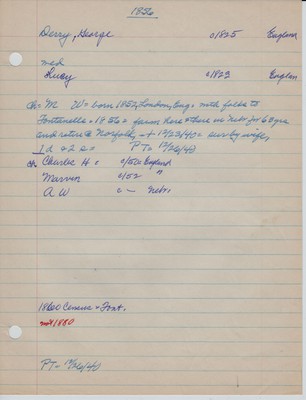 1856
Derry, George c1825 England
med
Lucy c1829 Englan
ch = M W = born 1852, London, Eng = with folks to
Fontanelle = 1856 = farm here & there in Nebr for 60 yrs
and retire @ Norfolk = + 12/23/40 = surv by wife,
1 d & 2 s = PT = 12/26/40
ch Charles H = c/50 England
Marven c/52 "
A W c - Nebr.
1860 Census = Font.
not 1880
PT = 12/26/40